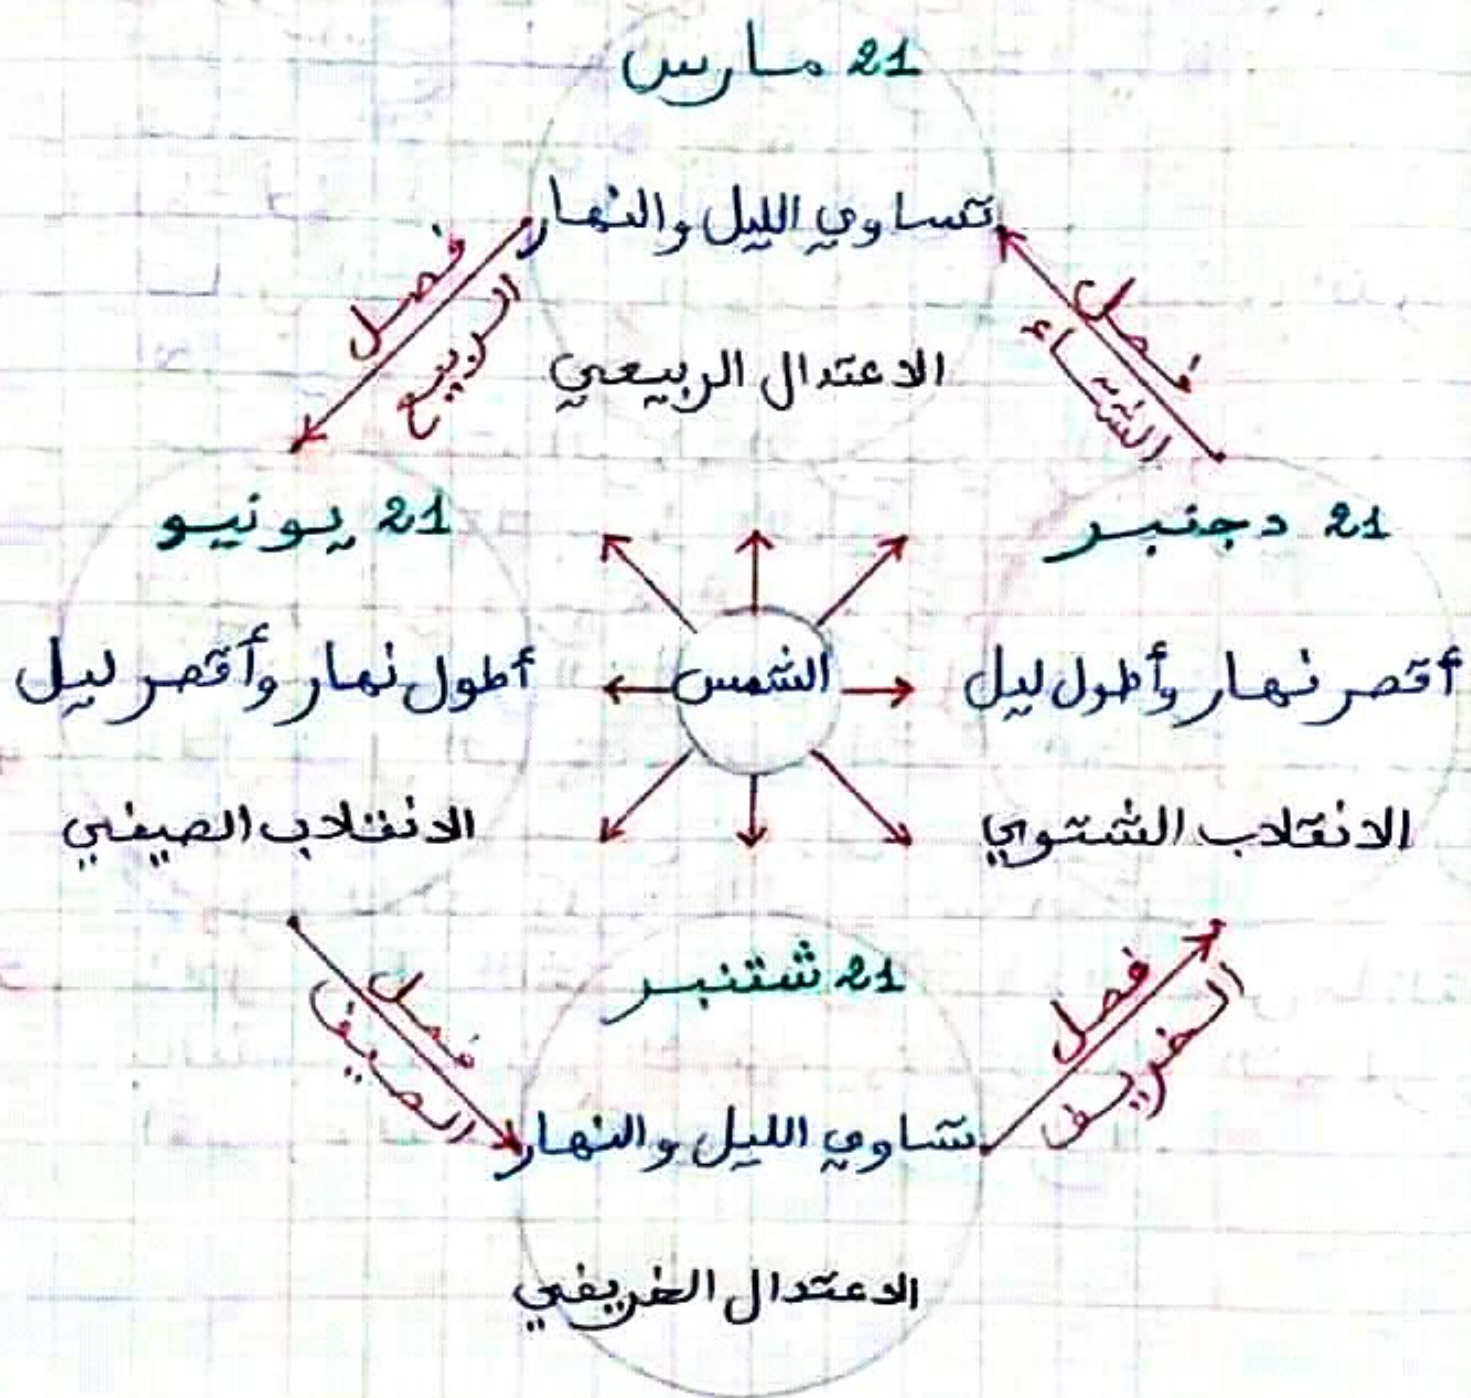 21 مارس
تساوي الليل والنهار
الاعتدال الربيعي
فصل
الشتاء
فصل
الربيع
21 دجنبر
أقصر نهار وأطول ليل
الانقلاب الشتوي
الشمس
21 يونيو
أطول نهار وأقصر ليل
الانقلاب الصيفي
فصل
الخريف
فصل
الصيف
21 شتنبر
تساوي الليل والنهار
الاعتدال الخريفي